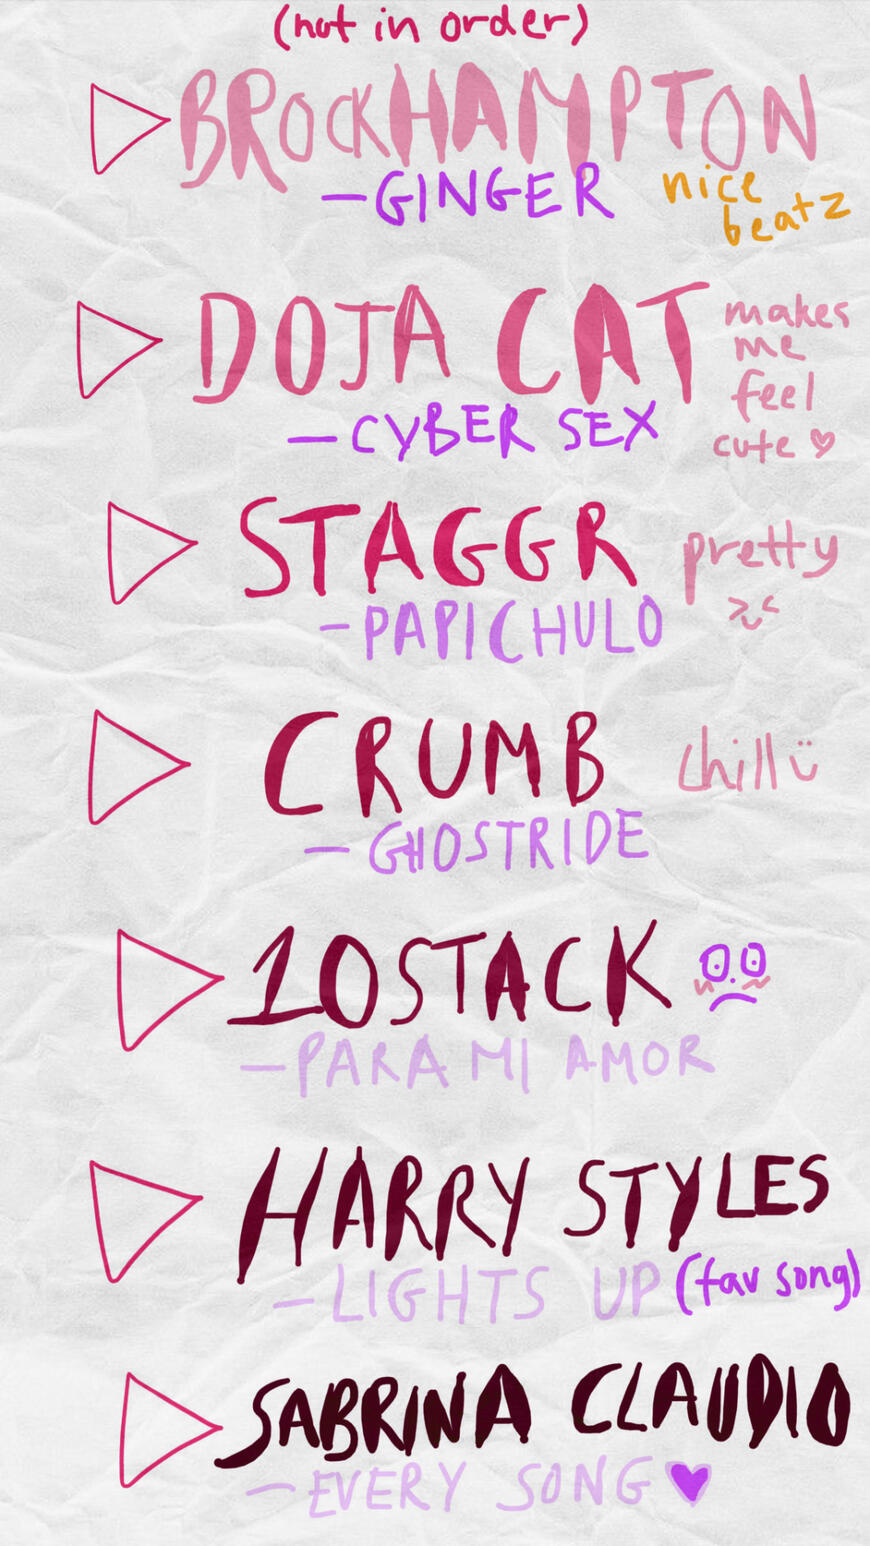 (not in order)
BROCKHAMPTON
-GINGER
nice
beatz
DOJA CAT
makes
me
feel
cute ♡
-CYBER SEX
STAGGR
pretty
-PAPICHULO
CRUMB
chill ü
-GHOSTRIDE
10STACK
-PARA MI AMOR
HARRY STYLES
-LIGHTS UP (fav song)
SABRINA CLAUDIO
-EVERY SONG ♥